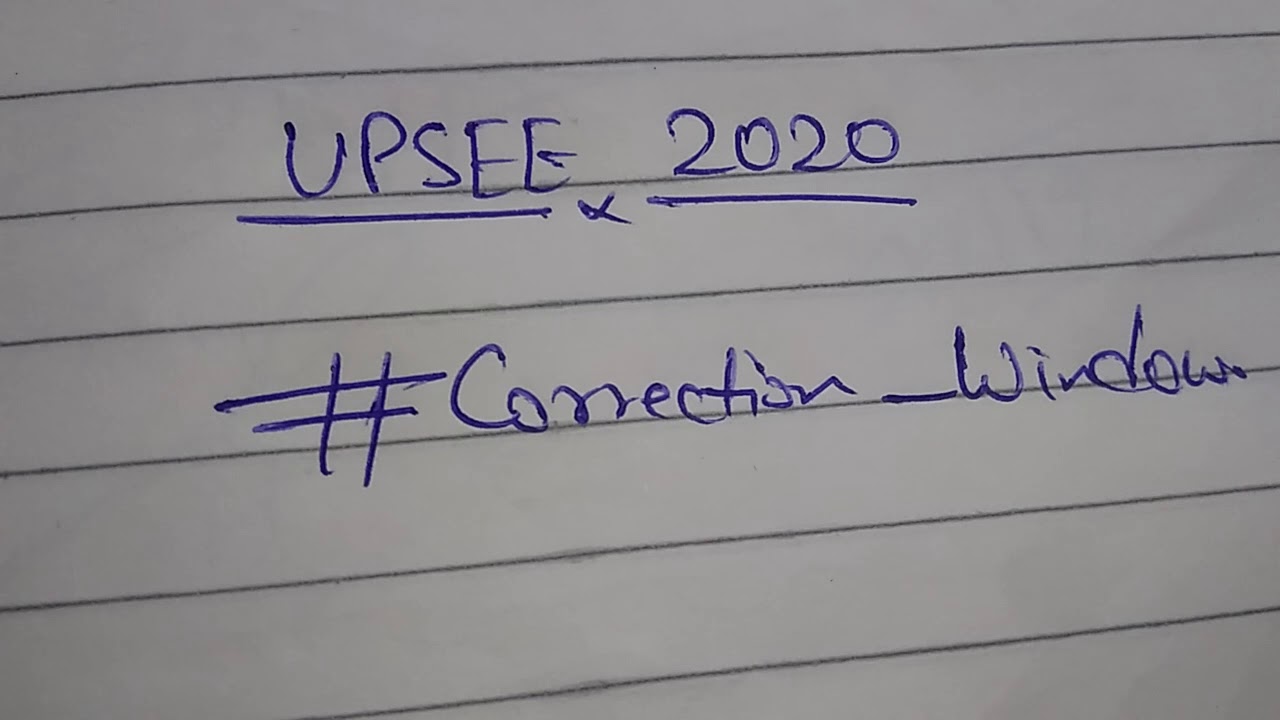 UPSEE 2020
#Correction_Window